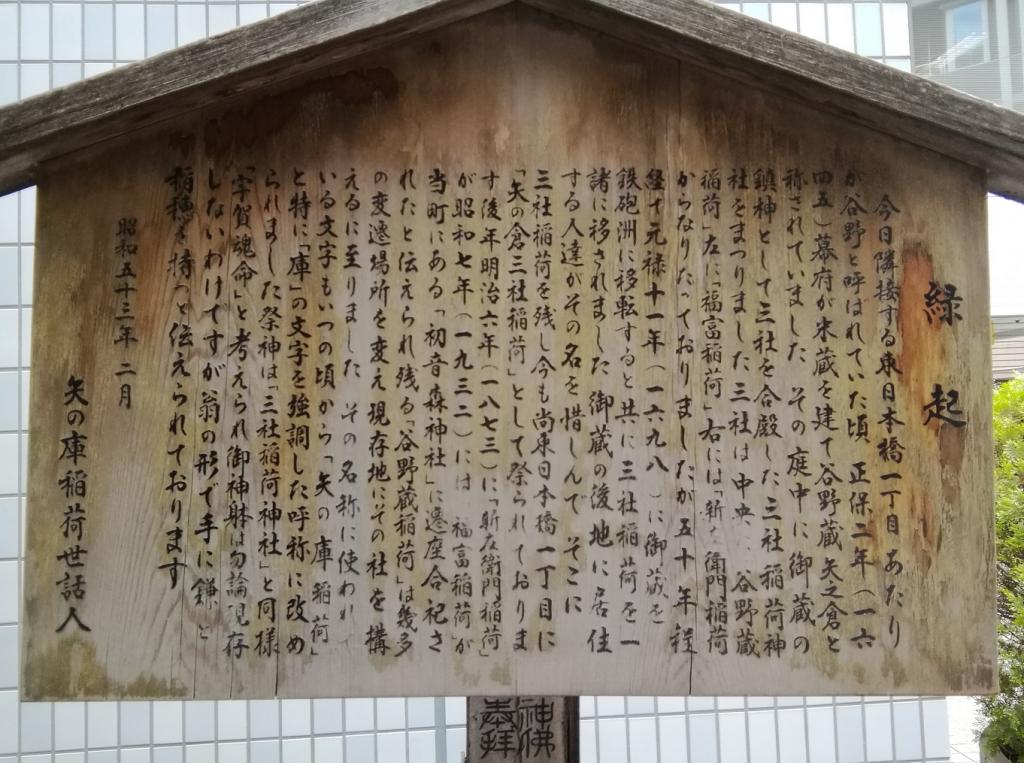 縁起
今日隣接する東日本橋一丁目あたり
が谷野と呼ばれていた頃 正保二年(一六
四五)幕府が米蔵を建て谷野蔵 矢之倉と
称されていました その庭中に御蔵の
鎮神として三社を合殿した三社稲荷神
社をまつりました三社は中央に 谷野蔵
稲荷」左に「福富稲荷」右には「斬 衛門稲荷
からなりたっておりましたが五十年程
経て元禄十一年(一六九八)に御蔵を
鉄砲洲に移転すると共に三社稲荷を一
諸に移されました御蔵の後地に居住
する人達がその名を惜しんで そこに
三社稲荷を残し今も尚東日本橋一丁目に
「矢の倉三社稲荷」として祭られておりま
す後年明治六年(一八七三)に「斬左衛門稲荷」
が昭和七年(一九三二)には 福富稲荷が
当町にある「初音森神社」に遷座合祀さ
れたと伝えられ残る「谷野蔵稲荷」は幾多
の変遷場所を変え現存地にその社を構
えるに至りました その名称に使われ
いる文字もいつの頃から「矢の庫 稲荷」
と特に「庫」の文字を強調した呼称に改め
られました祭神は「三社稲荷神社」と同様
「宇賀魂命」と考えられ御神躰は勿論現存
しないわけですが翁の形で手に鎌と
稲穂を持つと伝えられております
昭和五十三年 二月
矢の庫稲荷世話人
神佛
奉拝